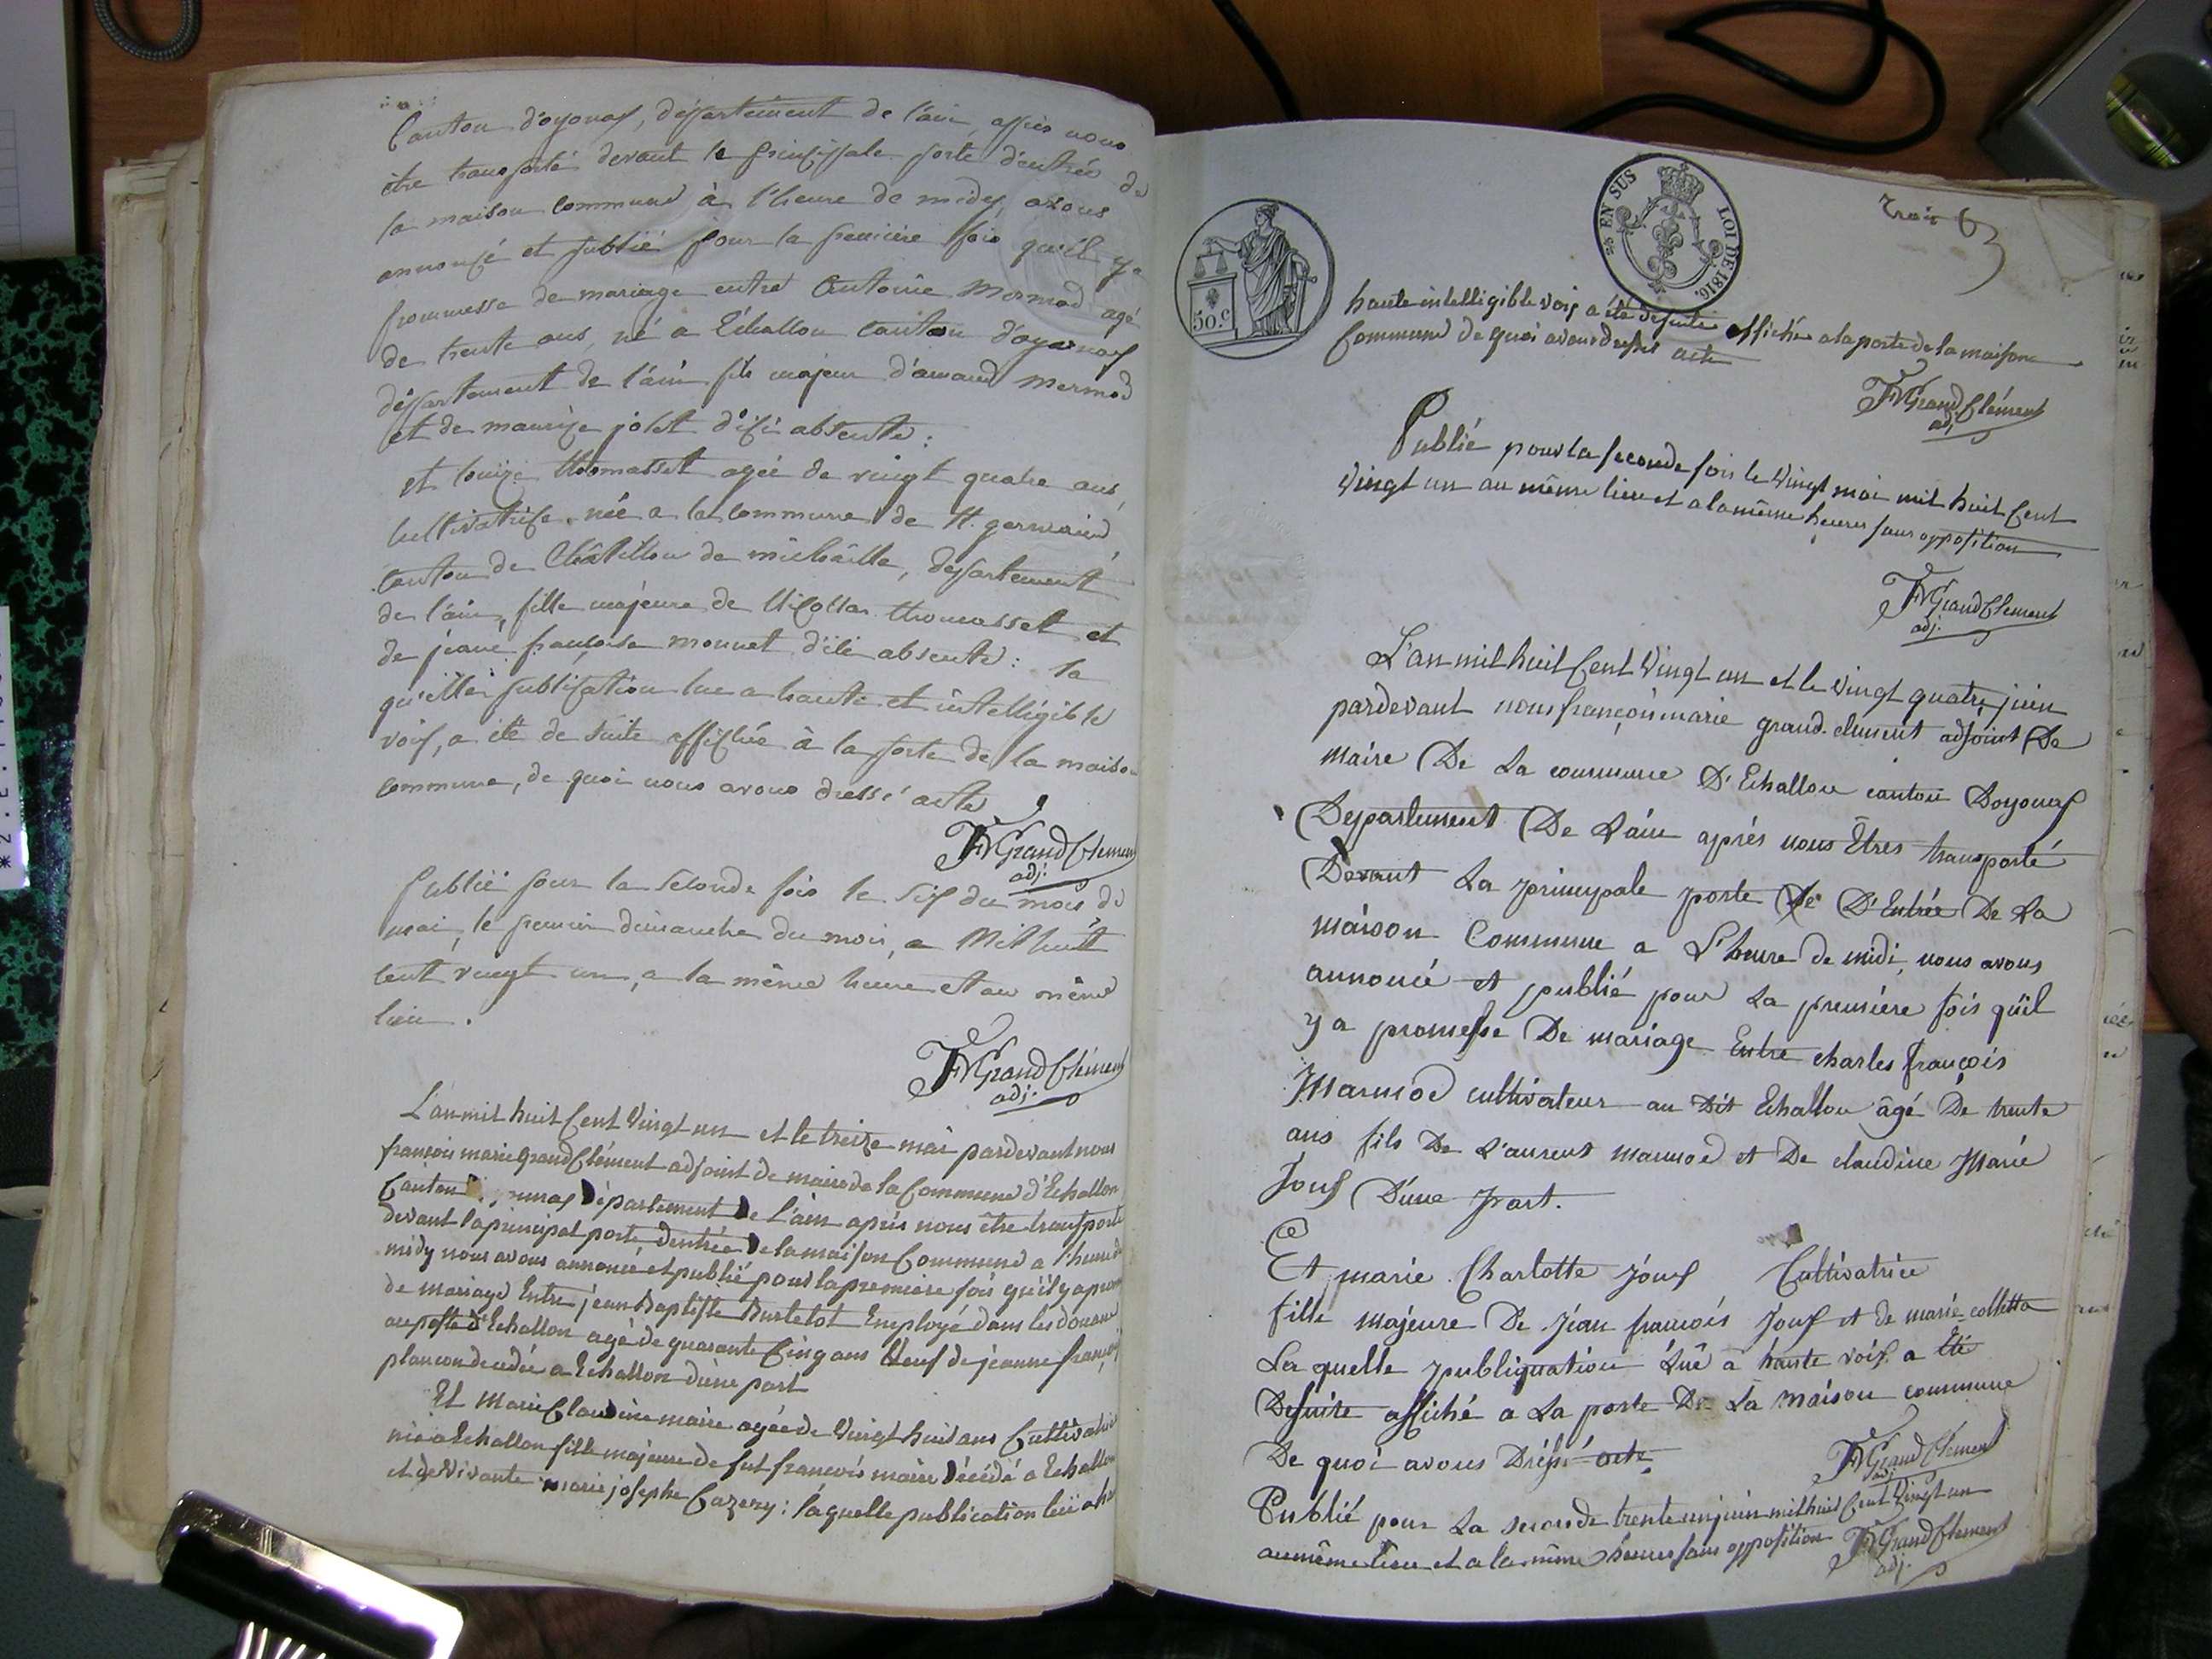 Canton d'oyonax, département de l'ain, après nous
être transporté devant le principale porte d'entrée de
la maison commune à l'heure de midy, avons
annoncé et publié pour la première fois qu'il y a
prommesse de mariage entre Antoine Mermod agé
de trente ans, né a Echallon canton d'oyonax
département de l'ain fils majeur d'amand Mermod
et de maurize jolet d'ici absente :
et louize thomasset agée de vingt quatre ans,
cultivatrice, née a la commune de St. germain,
canton de Châtillon de michaille, département
de l'ain, fille majeure de Nicollas thomasset et
de jeane françoise monnet d'ici absente : la
qu'elle publication lue a haute et intelligible
voix, a été de suite affichée à la porte de la maison
commune, de quoi nous avons dressé acte
FMGrandClement
adj.
Publié pour la seconde fois le six du mois de
mai, le premier dimanche du mois, a Mil huit
cent vingt un, a la même heure et au même
lieu.
FMGrandClément
adj.
L'an mil huit Cent Vingt un et le treize mai pardevant nous
françois marie grandClément adjoint de maire de la Commune d'Echallon
Canton onax Département De l'ain après nous être transporté
devant la principal porte dentrée De la maison Commune a l'heure de
midy nous avons annoncé et publié pour la premiere fois qu'il y a prom
de mariage Entre jean Baptiste Burtetot Employé dans les douane
au poste d'Echallon agé de quarante Cinq ans Veuf de jeanne françoi
plancon decedée a Echallon dune part
Et Marie Claudine maire agée de Vingt huit ans Cultivatric
née a Echallon fille majeure de fut francois maire Décédé a Echallon
et de Vivante marie josephe Cazery : laquelle publication luë a h
trois
50.c
EN SUS LOI DE 1816.
haute intelligible voix a été desuite affichée a la porte de la maisone
Commune de quoi avons dressé acte
FMGrandClément
adj
Publié pour la seconde fois le Vingt mai mil huit Cent
Vingt un au même lieu et a la même heure sans opposition
FMGrandClement
adj.
L'an mil huit Cent Vingt un et le vingt quatre juin
pardevant nous françois marie grand. clement adjoint De
maire De La commune D'Echallon canton Doyonax
Departement De Lain aprés nous Êtres transporté
Devant La principale porte De D'Entrée De La
maison Commune a L'heure de midi, nous avons
annoncé et publié pour La premiere fois qu'il
y a promesse De mariage Entre charles françois
Marmod cultivateur au Dit Echallon âgé De trente
ans fils De Laurent marmod et De claudine Marie
Joux D'une part.
Et marie Charlotte joux Cultivatrice
fille majeure De Jean francois Joux et de marie colletta
La quelle publiquation Luë a haute voix a Été
Desuite affiché a La porte De La maison commune
De quoi avons Dréssé acte
FMGrandClement
adj
Publié pour La seconde trente un juin mil huit Cent Vingt un
au même lieu et a la même heure sans opposition FMGrandClement
adj.